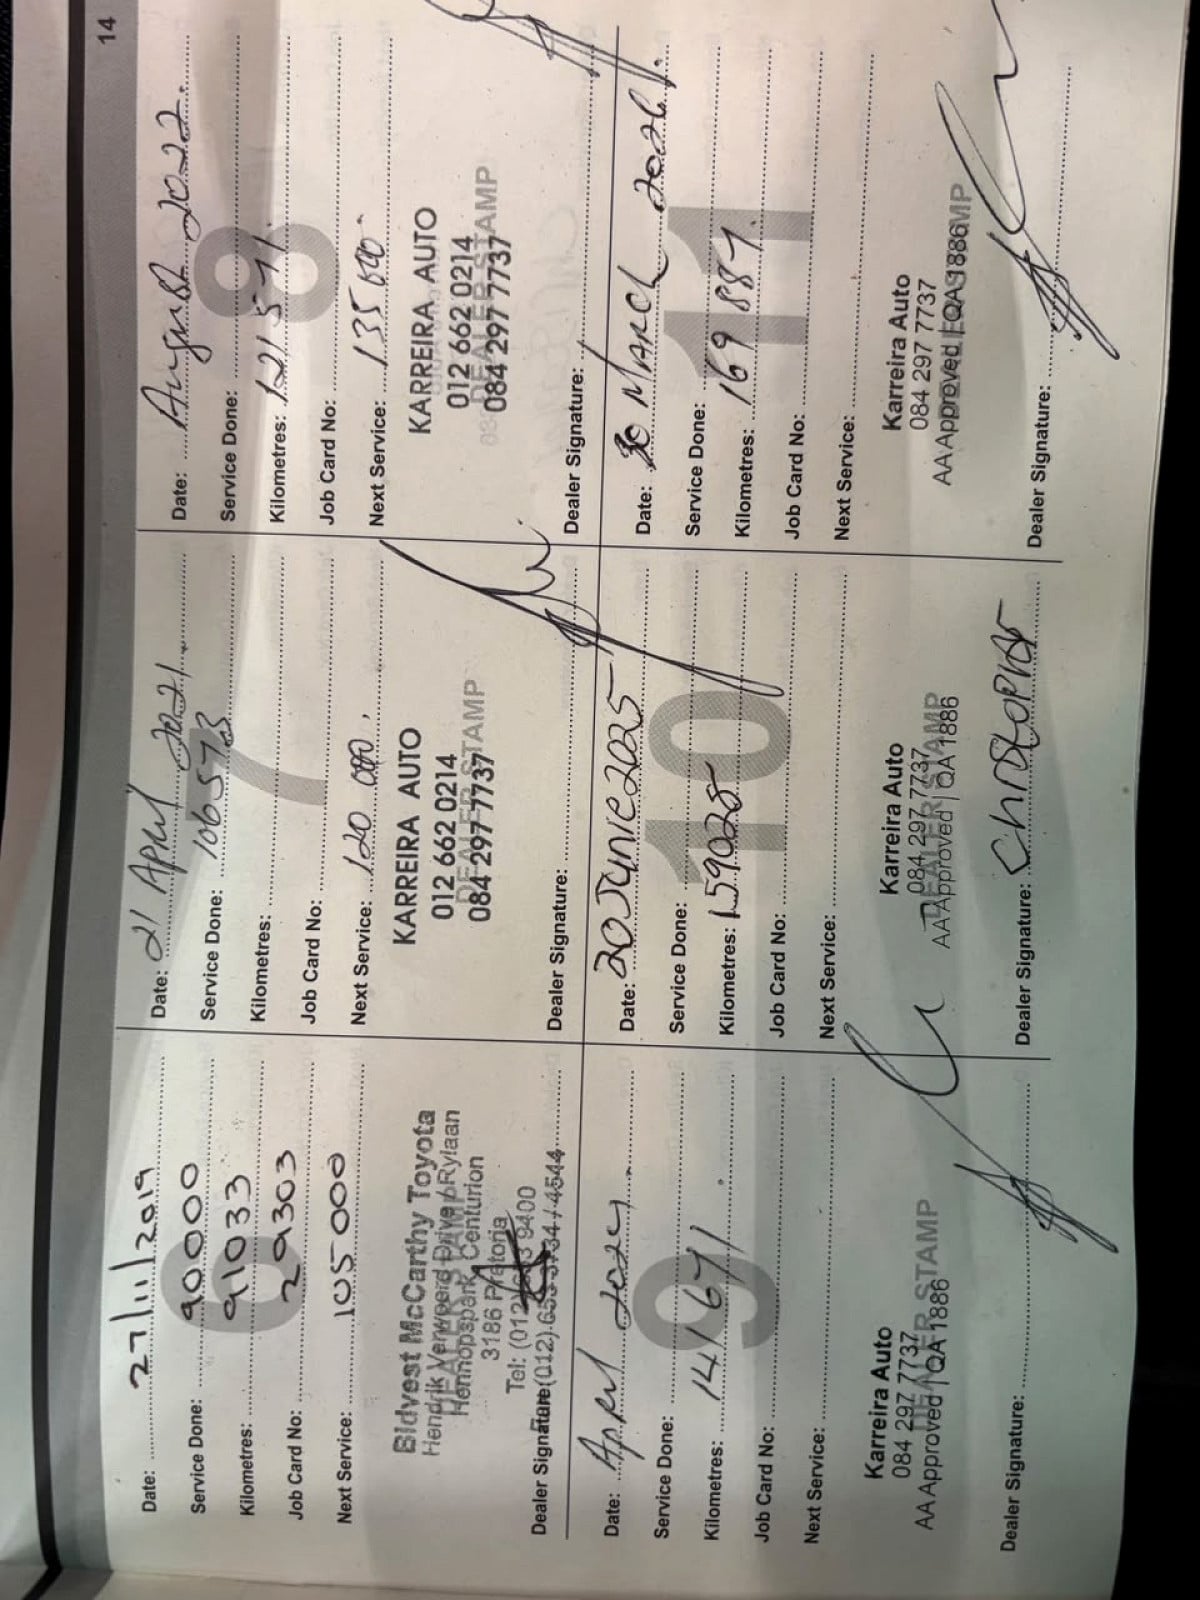 14
6
Date: 27/11/2019
Service Done: 90000
Kilometres: 91033
Job Card No: 29303
Next Service: 105000
Bidvest McCarthy Toyota
Hendrik Verwoerd Drive / Rylaan
Hennopspark, Centurion
3186 Pretoria
DEALER STAMP
Dealer Signature:
7
Date: 21 April 2021
Service Done: 106573
Kilometres:
Job Card No:
Next Service: 120 000
KARREIRA AUTO
012 662 0214
DEALER STAMP
084 297 7737
Dealer Signature:
8
Date: August 2022
Service Done:
Kilometres: 121 571
Job Card No:
Next Service: 135 000
KARREIRA AUTO
012 662 0214
DEALER STAMP
084 297 7737
Dealer Signature:
9
Date: April 2024
Service Done:
Kilometres: 141 671
Job Card No:
Next Service:
Karreira Auto
084 297 7737
DEALER STAMP
AA Approved | QA 1886
Dealer Signature:
10
Date: 20 June 2025
Service Done:
Kilometres: 159028
Job Card No:
Next Service:
Karreira Auto
084 297 7737
DEALER STAMP
AA Approved | QA 1886
Dealer Signature: Christopher
11
Date: 30 March 2026
Service Done:
Kilometres: 169 887
Job Card No:
Next Service:
Karreira Auto
084 297 7737
AA Approved | QA 1886
Dealer Signature: